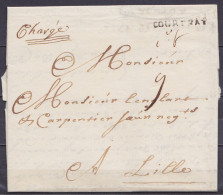 Chargé
COURTRAY
Monsieur
Monsieur Constant
de Carpentier jeune negt
A Lille